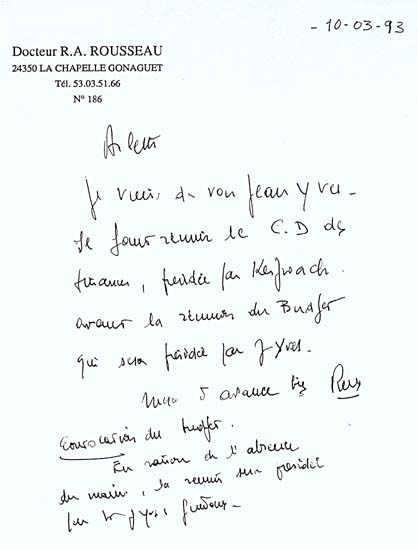 - 10-03-93
Docteur R.A. ROUSSEAU
24350 LA CHAPELLE GONAGUET
Tél. 53.03.51.66
N° 186
Arlette
Je viens de voir Jean Yves -
Il faut réunir le C.D des
finances, présidée par
avant la réunion du Budget
qui sera présidée par J Yves.
Merci d'avance
Convocation du budget.
En raison de l'absence
du maire, la réunion sera présidée
par Mr J Yves